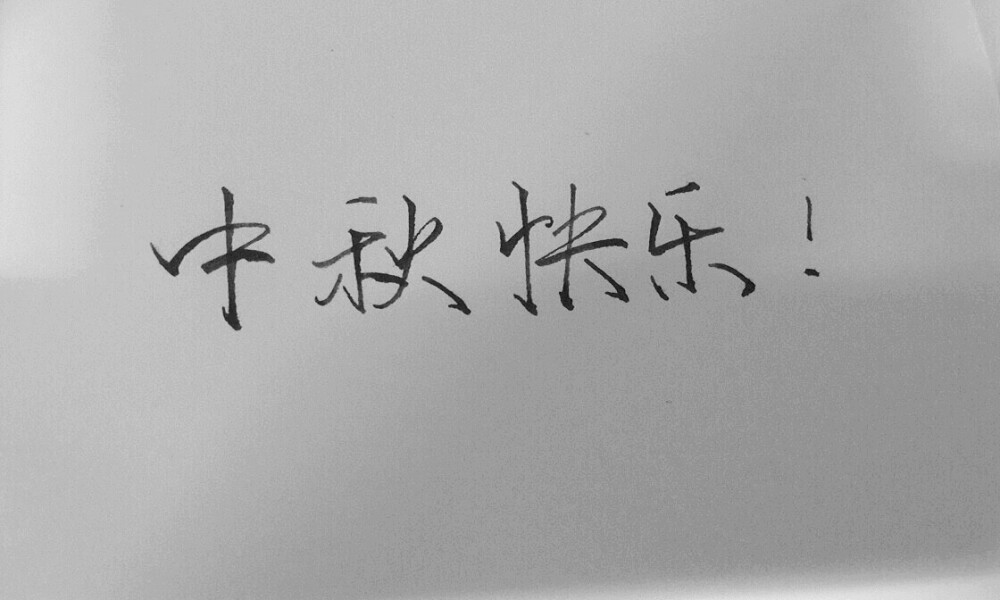 中秋快乐!